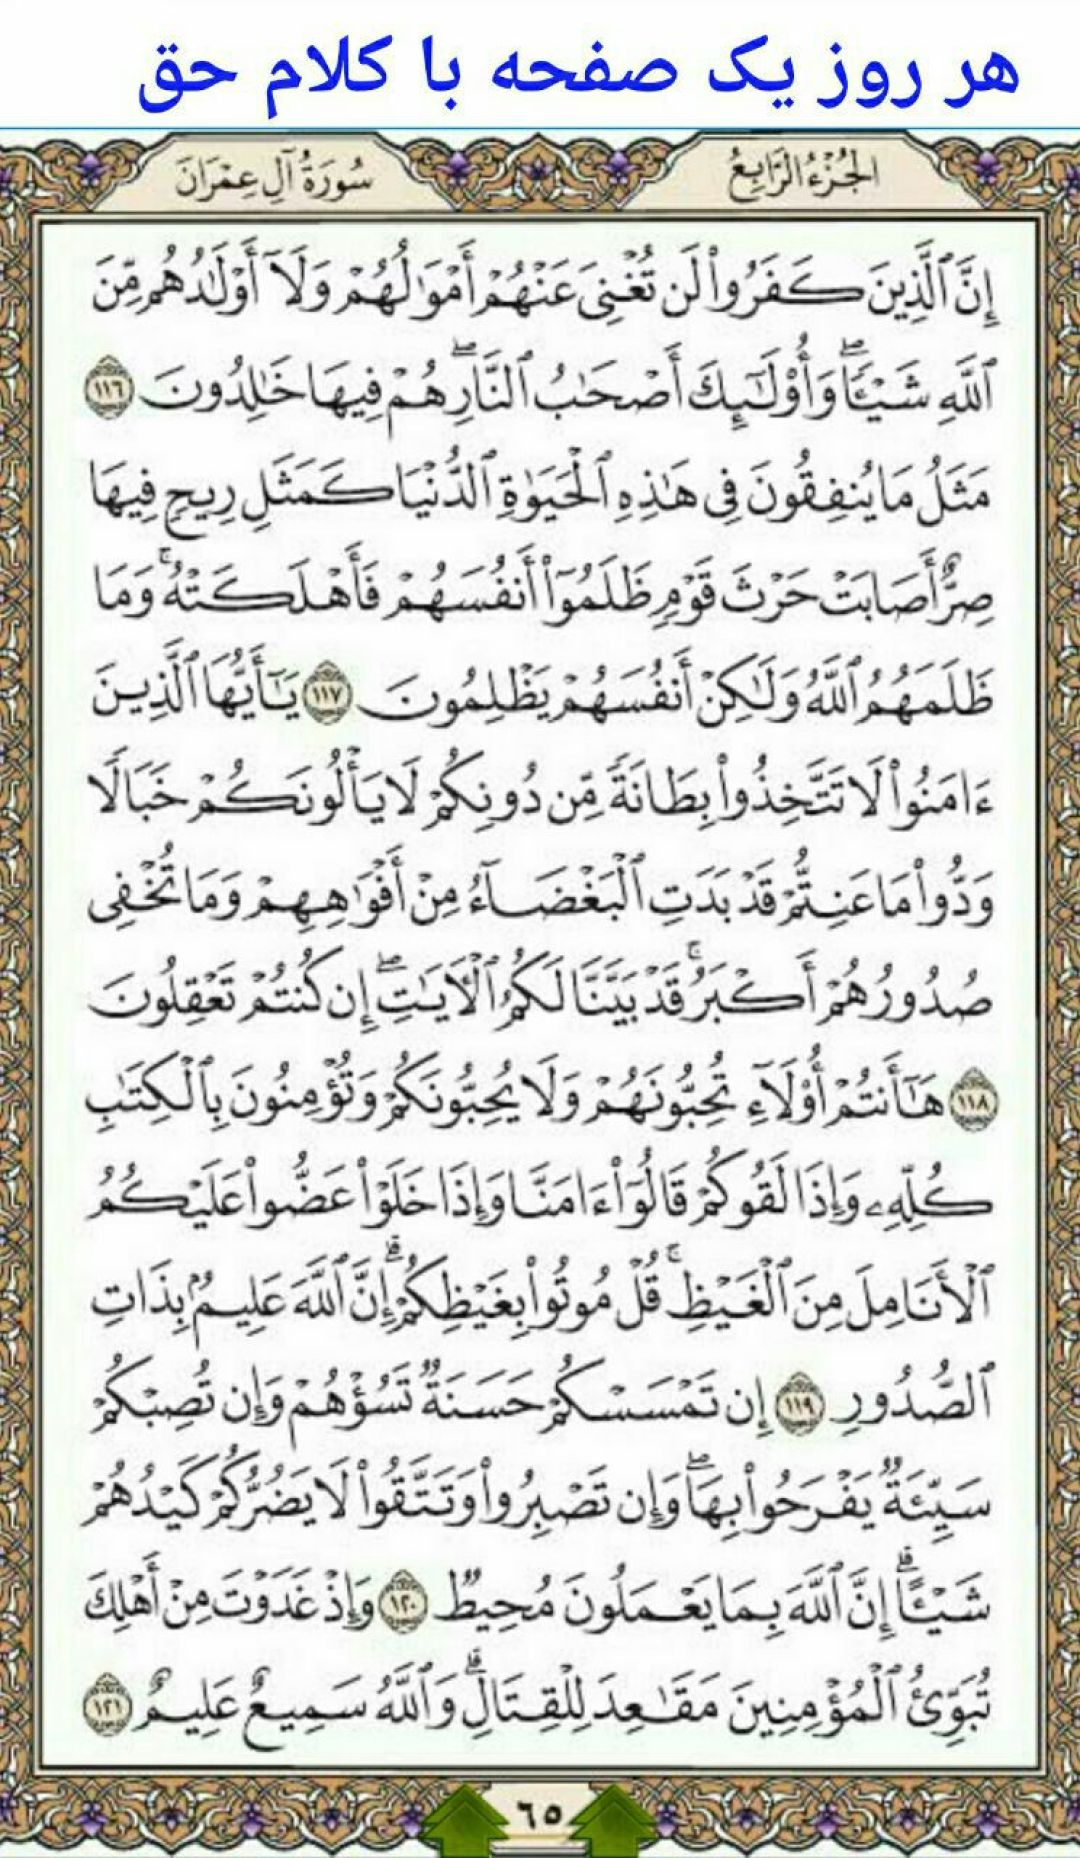 هر روز یک صفحه با کلام حق
الجُزْءُ الرَّابِعُ
سُورَةُ آلِ عِمْرَانَ
إِنَّ ٱلَّذِينَ كَفَرُوا۟ لَن تُغْنِىَ عَنْهُمْ أَمْوَٰلُهُمْ وَلَآ أَوْلَـٰدُهُم مِّنَ
ٱللَّهِ شَيْـًٔا ۖ وَأُو۟لَـٰٓئِكَ أَصْحَـٰبُ ٱلنَّارِ ۖ هُمْ فِيهَا خَـٰلِدُونَ ١١٦
مَثَلُ مَا يُنفِقُونَ فِى هَـٰذِهِ ٱلْحَيَوٰةِ ٱلدُّنْيَا كَمَثَلِ رِيحٍ فِيهَا
صِرٌّ أَصَابَتْ حَرْثَ قَوْمٍ ظَلَمُوٓا۟ أَنفُسَهُمْ فَأَهْلَكَتْهُ ۚ وَمَا
ظَلَمَهُمُ ٱللَّهُ وَلَـٰكِنْ أَنفُسَهُمْ يَظْلِمُونَ ١١٧ يَـٰٓأَيُّهَا ٱلَّذِينَ
ءَامَنُوا۟ لَا تَتَّخِذُوا۟ بِطَانَةً مِّن دُونِكُمْ لَا يَأْلُونَكُمْ خَبَالًا
وَدُّوا۟ مَا عَنِتُّمْ قَدْ بَدَتِ ٱلْبَغْضَآءُ مِنْ أَفْوَٰهِهِمْ وَمَا تُخْفِى
صُدُورُهُمْ أَكْبَرُ ۚ قَدْ بَيَّنَّا لَكُمُ ٱلْـَٔايَـٰتِ ۖ إِن كُنتُمْ تَعْقِلُونَ
١١٨ هَـٰٓأَنتُمْ أُو۟لَآءِ تُحِبُّونَهُمْ وَلَا يُحِبُّونَكُمْ وَتُؤْمِنُونَ بِٱلْكِتَـٰبِ
كُلِّهِۦ وَإِذَا لَقُوكُمْ قَالُوٓا۟ ءَامَنَّا وَإِذَا خَلَوْا۟ عَضُّوا۟ عَلَيْكُمُ
ٱلْأَنَامِلَ مِنَ ٱلْغَيْظِ ۚ قُلْ مُوتُوا۟ بِغَيْظِكُمْ ۗ إِنَّ ٱللَّهَ عَلِيمٌۢ بِذَاتِ
ٱلصُّدُورِ ١١٩ إِن تَمْسَسْكُمْ حَسَنَةٌ تَسُؤْهُمْ وَإِن تُصِبْكُمْ
سَيِّئَةٌ يَفْرَحُوا۟ بِهَا ۖ وَإِن تَصْبِرُوا۟ وَتَتَّقُوا۟ لَا يَضُرُّكُمْ كَيْدُهُمْ
شَيْـًٔا ۗ إِنَّ ٱللَّهَ بِمَا يَعْمَلُونَ مُحِيطٌ ١٢٠ وَإِذْ غَدَوْتَ مِنْ أَهْلِكَ
تُبَوِّئُ ٱلْمُؤْمِنِينَ مَقَـٰعِدَ لِلْقِتَالِ ۗ وَٱللَّهُ سَمِيعٌ عَلِيمٌ ١٢١
٦٥